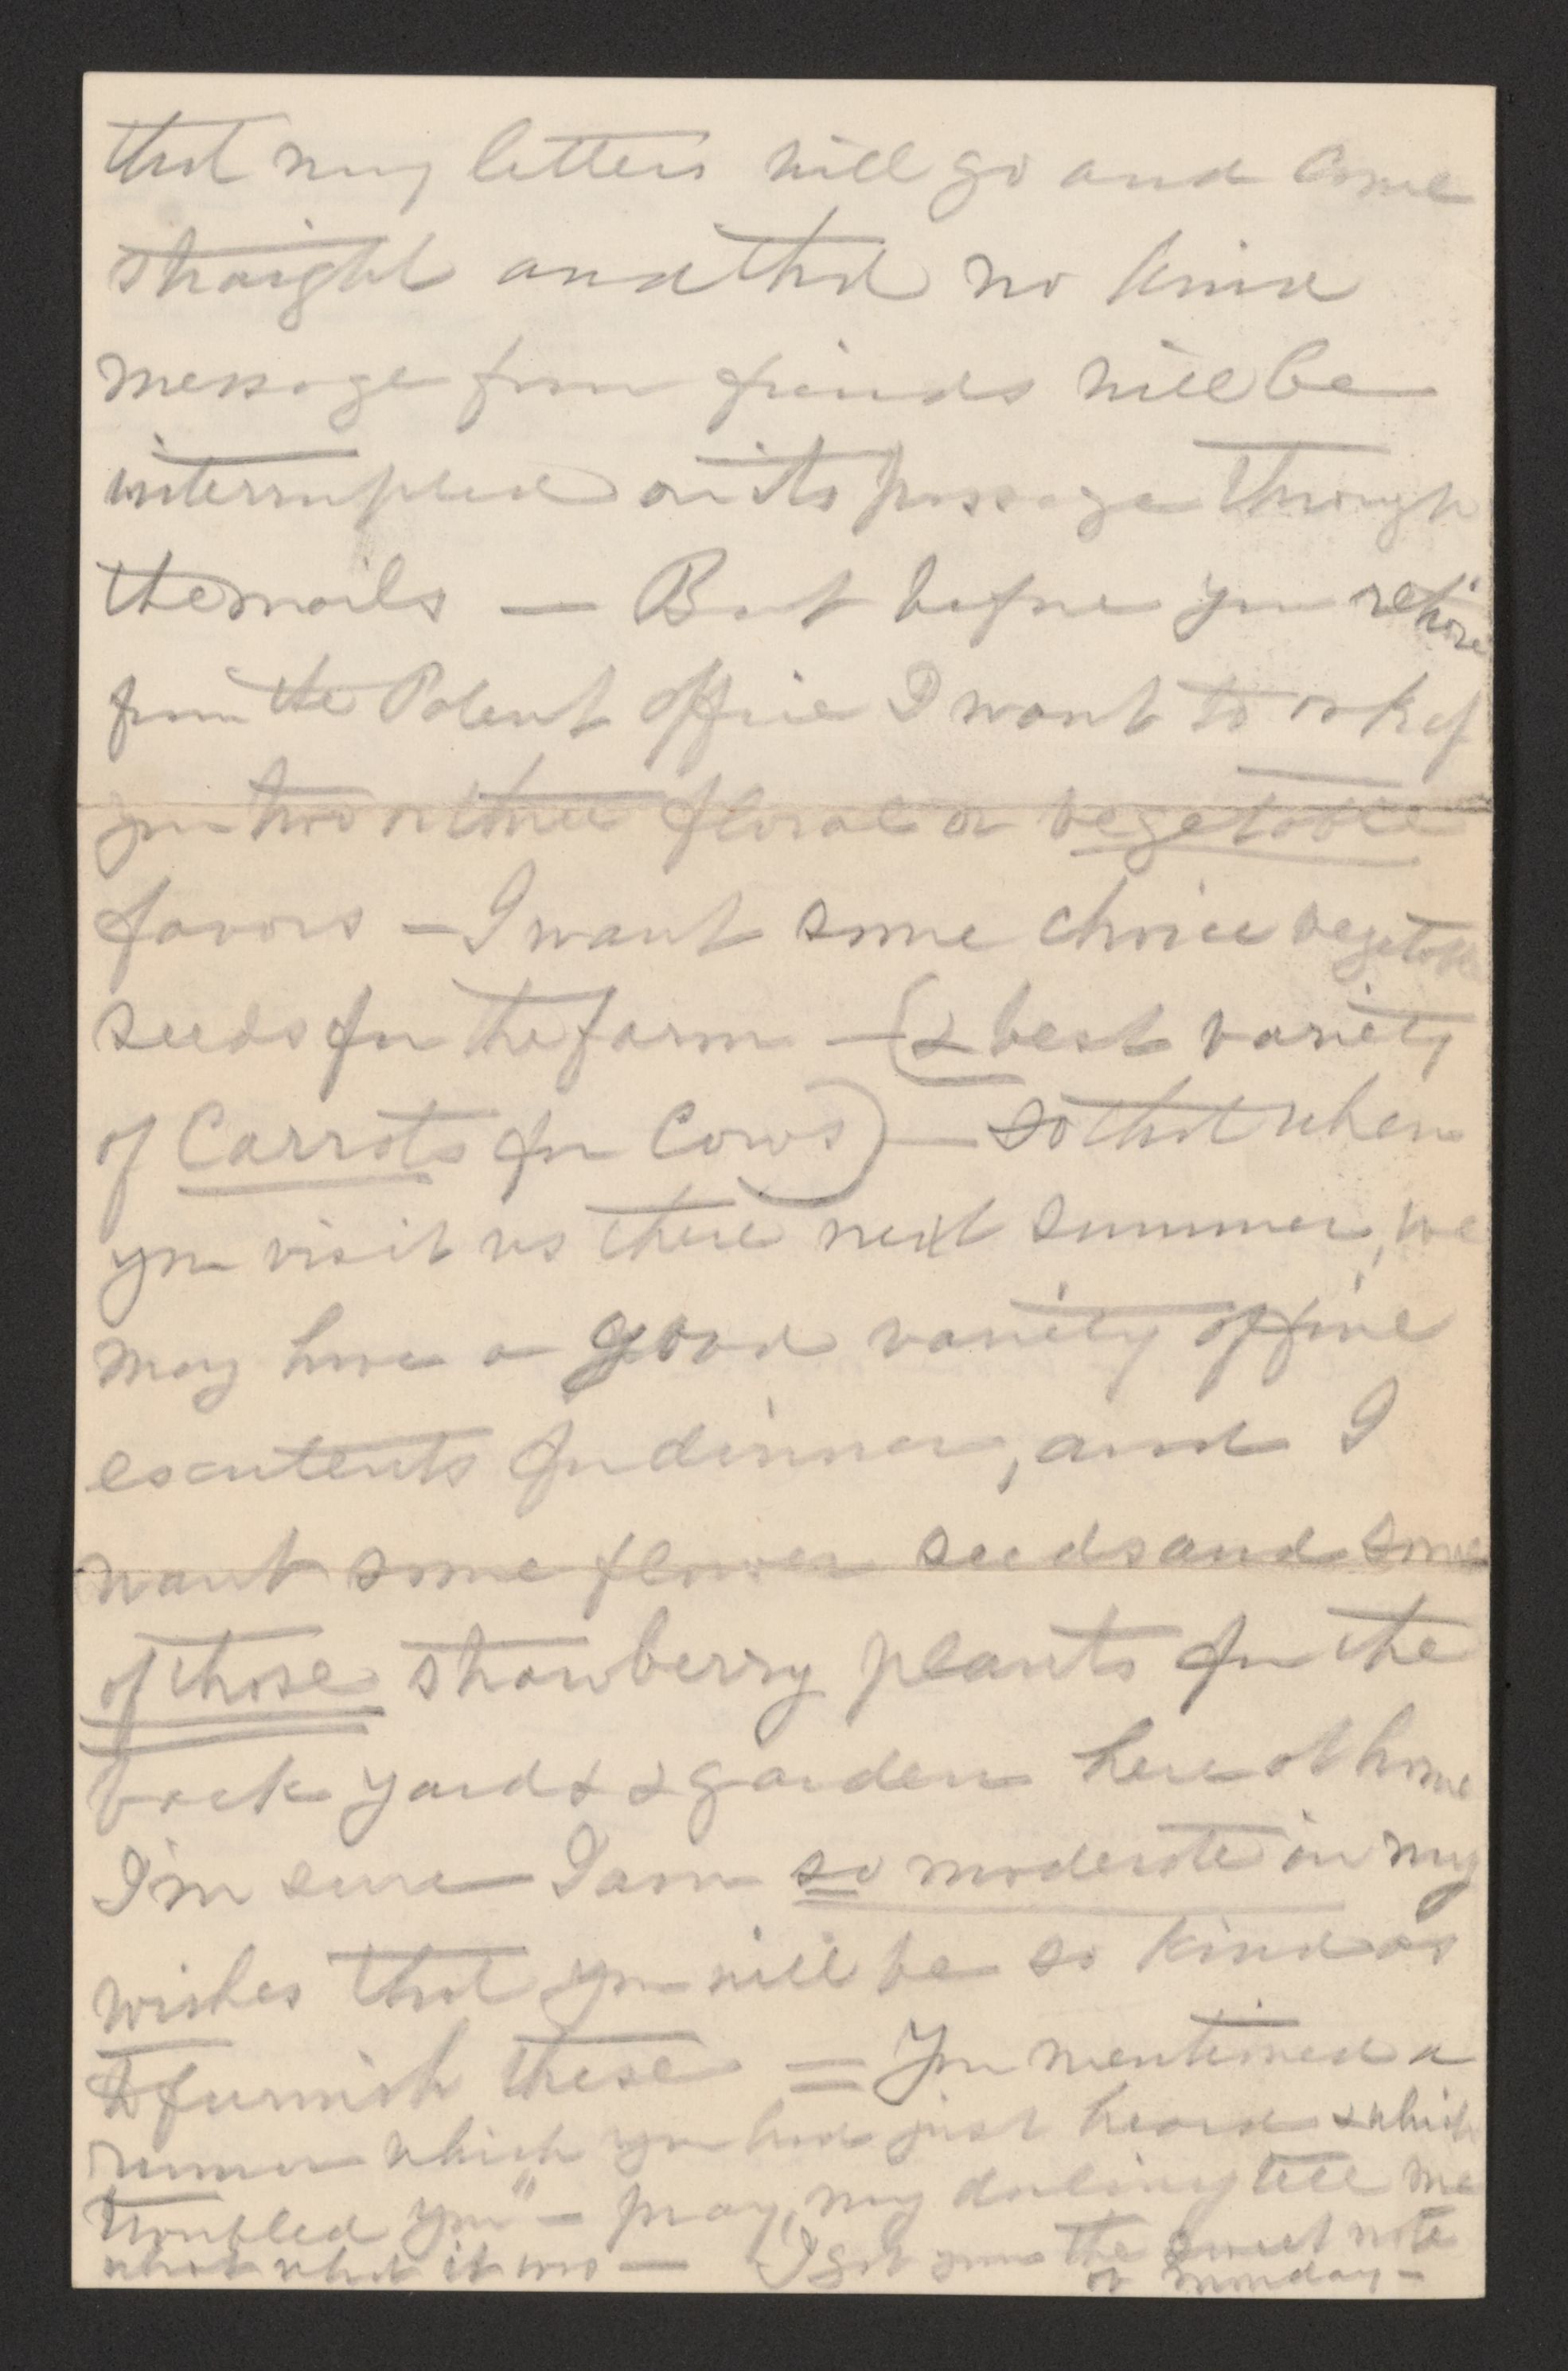 that my letters will go and come
straight and that no kind
message from friends will be
interrupted on its passage through
the mails — But before you retire
from the Patent Office I want to ask of
you two or three floral or vegetable
favors — I want some choice vegetable
seeds for the farm — (& best variety
of Carrots for Cows) — so that when
you visit us there next summer, we
may have a good variety of fine
esculents for dinner, and I
want some flower seeds and some
of those strawberry plants for the
back yard & garden here at home
I'm sure I am so moderate in my
wishes that you will be so kind as
to furnish these = You mentioned a
rumor which you had just heard & which
troubled you" — pray, my darling tell me
what it was — I got your the sweet note
of Monday —